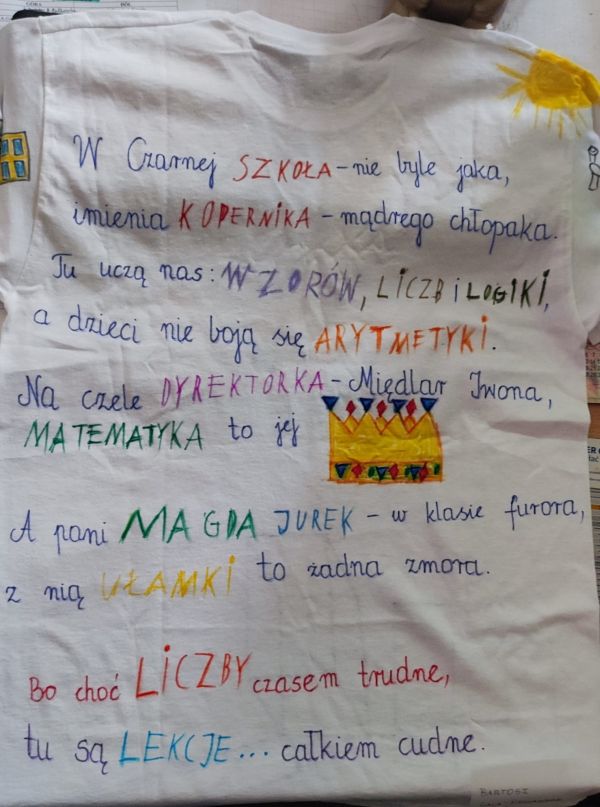 W Czarnej SZKOŁA – nie byle jaka,
imienia KOPERNIKA – mądrego chłopaka.
Tu uczą nas: WZORÓW, LICZB i LOGIKI,
a dzieci nie boją się ARYTMETYKI.
Na czele DYREKTORKA – Międlar Iwona,
MATEMATYKA to jej
A pani MAGDA JUREK – w klasie furora,
z nią UŁAMKI to żadna zmora.
Bo choć LICZBY czasem trudne,
tu są LEKCJE... całkiem cudne.
BARTOSZ